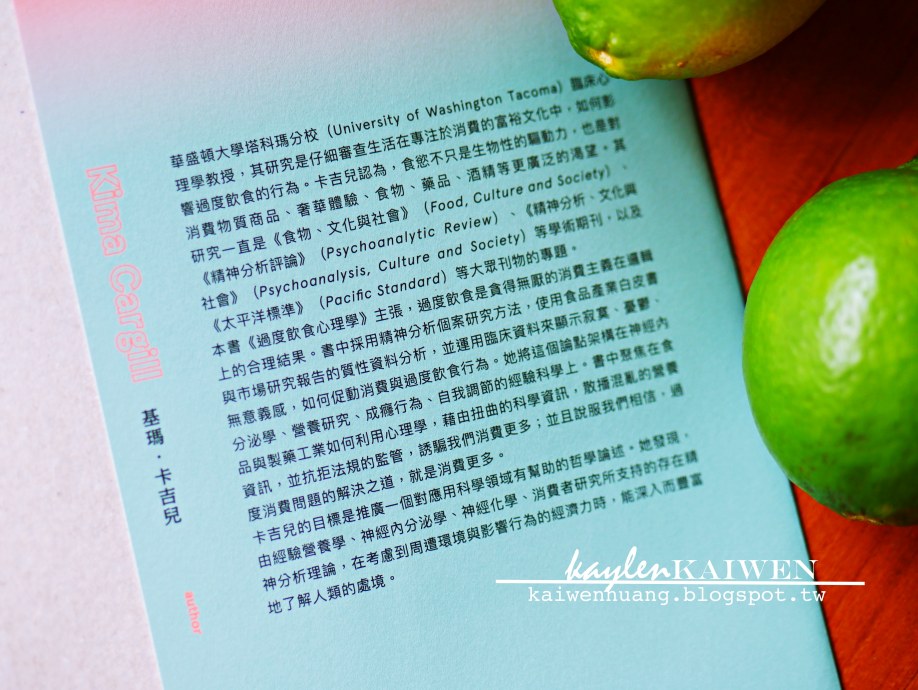 Kima Cargill
基瑪・卡吉兒
author
華盛頓大學塔科瑪分校（University of Washington Tacoma）臨床心
理學教授，其研究是仔細審查生活在專注於消費的富裕文化中，如何影
響過度飲食的行為。卡吉兒認為，食慾不只是生物性的驅動力，也是對
消費物質商品、奢華體驗、食物、藥品、酒精等更廣泛的渴望。其
研究一直是《食物、文化與社會》（Food, Culture and Society）、
《精神分析評論》（Psychoanalytic Review）、《精神分析、文化與
社會》（Psychoanalysis, Culture and Society）等學術期刊，以及
《太平洋標準》（Pacific Standard）等大眾刊物的專題。
本書《過度飲食心理學》主張，過度飲食是貪得無厭的消費主義在邏輯
上的合理結果。書中採用精神分析個案研究方法，使用食品產業白皮書
與市場研究報告的質性資料分析，並運用臨床資料來顯示寂寞、憂鬱、
無意義感，如何促動消費與過度飲食行為。她將這個論點架構在神經內
分泌學、營養研究、成癮行為、自我調節的經驗科學上。書中聚焦在食
品與製藥工業如何利用心理學，藉由扭曲的科學資訊，散播混亂的營養
資訊，並抗拒法規的監管，誘騙我們消費更多；並且說服我們相信，過
度消費問題的解決之道，就是消費更多。
卡吉兒的目標是推廣一個對應用科學領域有幫助的哲學論述。她發現，
由經驗營養學、神經內分泌學、神經化學、消費者研究所支持的存在精
神分析理論，在考慮到周遭環境與影響行為的經濟力時，能深入而豐富
地了解人類的處境。
kaylenKAIWEN
kaiwenhuang.blogspot.tw